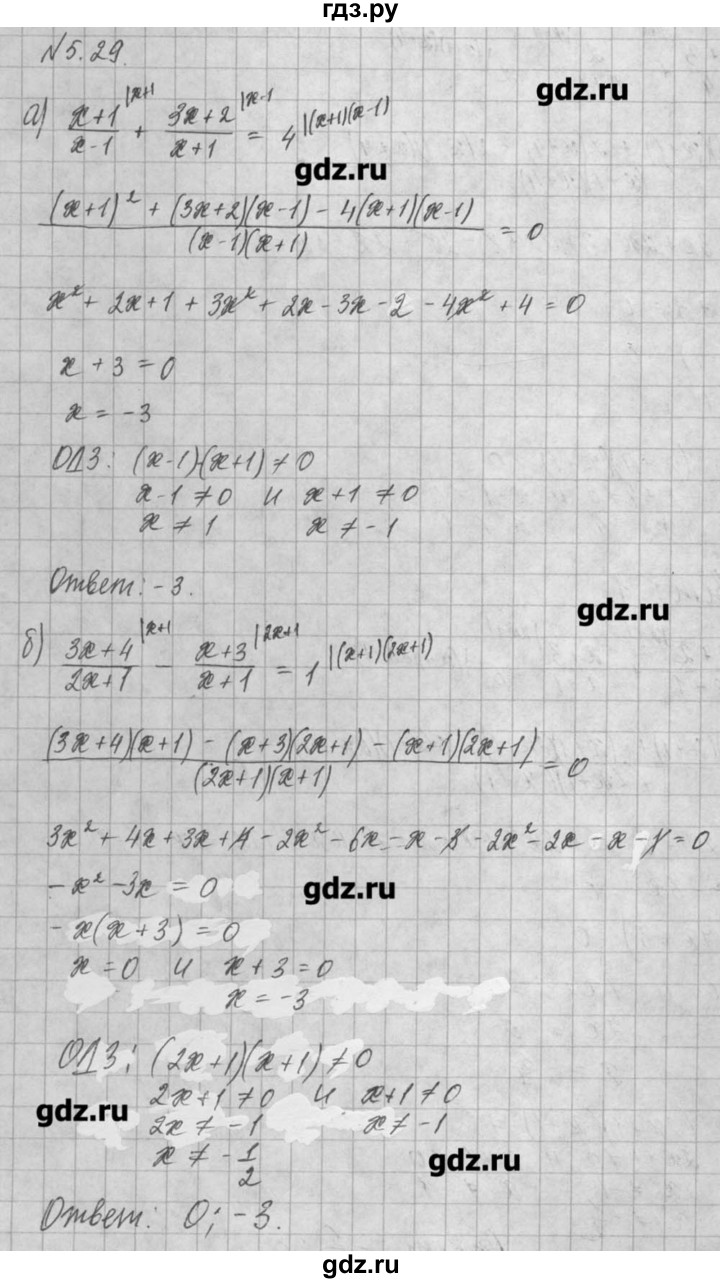 гдз.ру
№5.29.
gdz.ru
а) (x+1)/(x-1) |x+1 + (3x+2)/(x+1) |x-1 = 4 |(x+1)(x-1)
gdz.ru
((x+1)² + (3x+2)(x-1) - 4(x+1)(x-1))/((x-1)(x+1)) = 0
x² + 2x+1 + 3x² + 2x - 3x - 2 - 4x² + 4 = 0
x + 3 = 0
x = -3
ОДЗ: (x-1)(x+1) ≠ 0
x-1 ≠ 0 и x+1 ≠ 0
x ≠ 1 x ≠ -1
Ответ: -3.
gdz.ru
б) (3x+4)/(2x+1) |x+1 - (x+3)/(x+1) |2x+1 = 1 |(x+1)(2x+1)
((3x+4)(x+1) - (x+3)(2x+1) - (x+1)(2x+1))/((2x+1)(x+1)) = 0
3x² + 4x + 3x + 4 - 2x² - 6x - x - 3 - 2x² - 2x - x - 1 = 0
-x² - 3x = 0
gdz.ru
-x(x+3) = 0
x = 0 и x+3 = 0
x = -3
ОДЗ: (2x+1)(x+1) ≠ 0
2x+1 ≠ 0 и x+1 ≠ 0
gdz.ru
2x ≠ -1 x ≠ -1
x ≠ -1/2
gdz.ru
Ответ: 0; -3.
gdz.ru